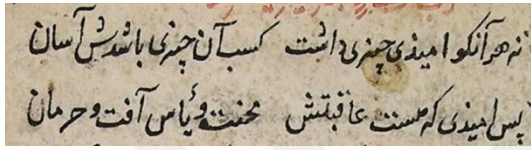 نه هر آنکو امیذی چیزی داشت کسب آن چیزی باشدش آسان
بس امیذی که هست عاقبتش محنت و یاس آفت و حرمان